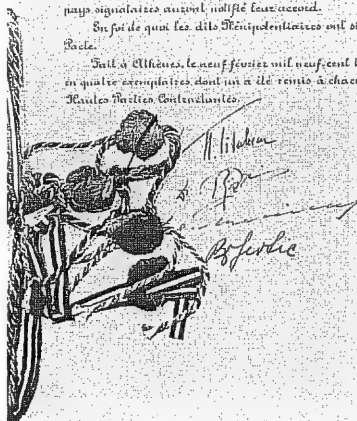 pays signataires auront notifié leur accord.
En foi de quoi les dits Plénipotentiaires ont si
Pacte.
Fait à Athènes, le neuf février mil neuf cent t
en quatre exemplaires, dont un a été remis à chac
Hautes Parties Contractantes.